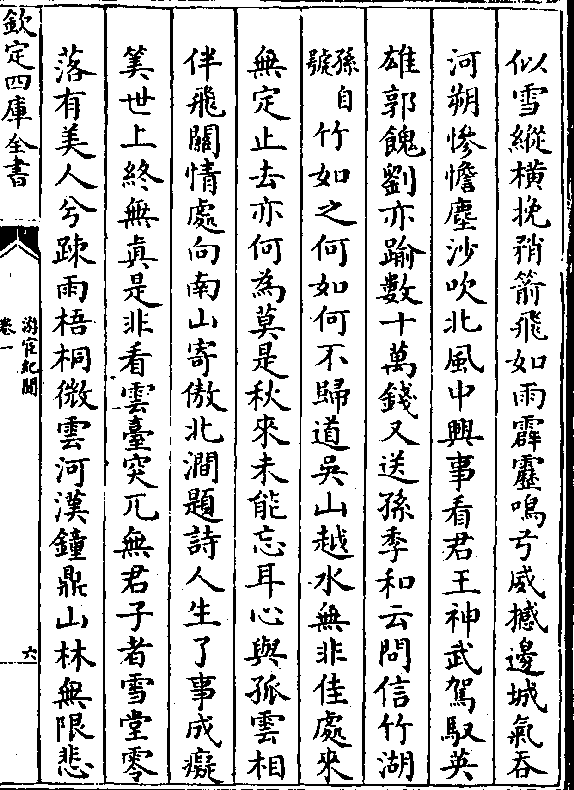 似雪縱橫挽矟箭飛如雨霹靂鳴弓威撼邊城氣吞
河朔慘憺塵沙吹北風中興事看君王神武駕馭英
雄郭餽劉亦踰數十萬錢又送孫季和云問信竹湖
孫自號竹如之何如何不歸道吳山越水無非佳處來
無定止去亦何為莫是秋來未能忘耳心與孤雲相
伴飛關情處向南山寄傲北澗題詩人生了事成癡
筭世上終無真是非看雲臺突兀無君子者雪堂零
落有美人兮踈雨梧桐微雲河漢鐘鼎山林無限悲
欽定四庫全書
游宦紀聞
卷一
六